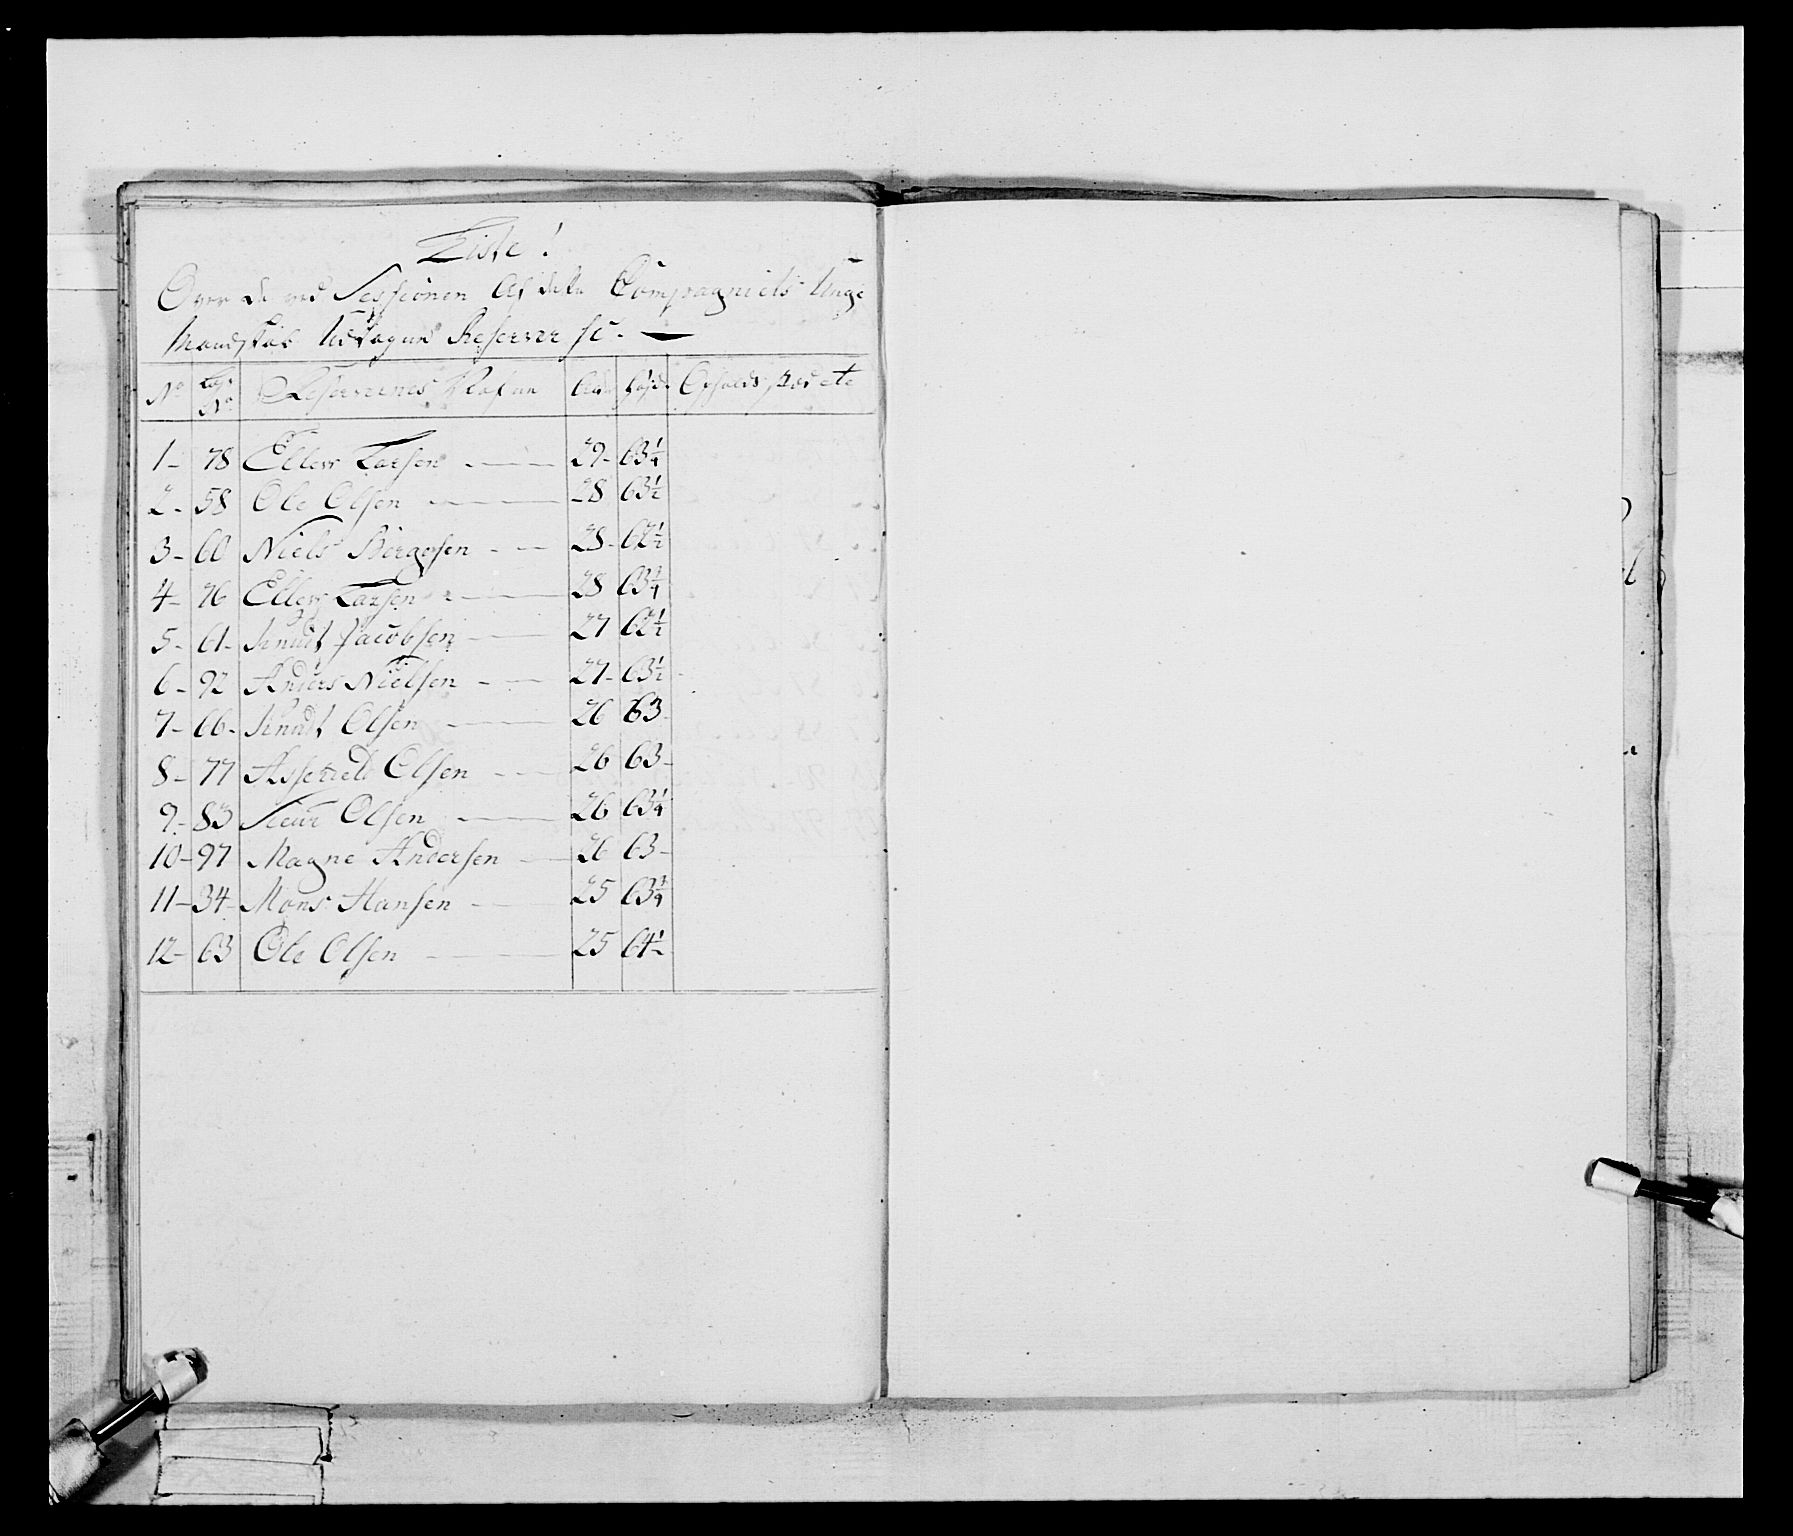 Liste!
Over de ved Sessionen Af dette Compagniets Unge
Mandskab Udtagne Reserver sc.
No No Reservernes Nafne Alder Højde Opholds stæd etc
1 - 78 Ellew Larsen 29 - 63 1/4
2 - 58 Ole Olsen 28 63 1/2
3 - 60 Niels Børgesen 28 - 62 1/2
4 - 76 Ellew Larsen 28 63 3/4
5 - 61 - Knudt Jacobsen 27 62 1/2
6 - 92 Anders Nielsen 27 - 63 1/2
7 - 66 - Knudt Olsen 26 63 -
8 - 77 Olsen 26 63 -
9 - 83 Siewr Olsen 26 63 1/4
10 - 97 Magne Andersen 26 63 -
11 - 34 - Mons Hansen 25 63 3/4
12 - 63 Ole Olsen 25 64 1/2